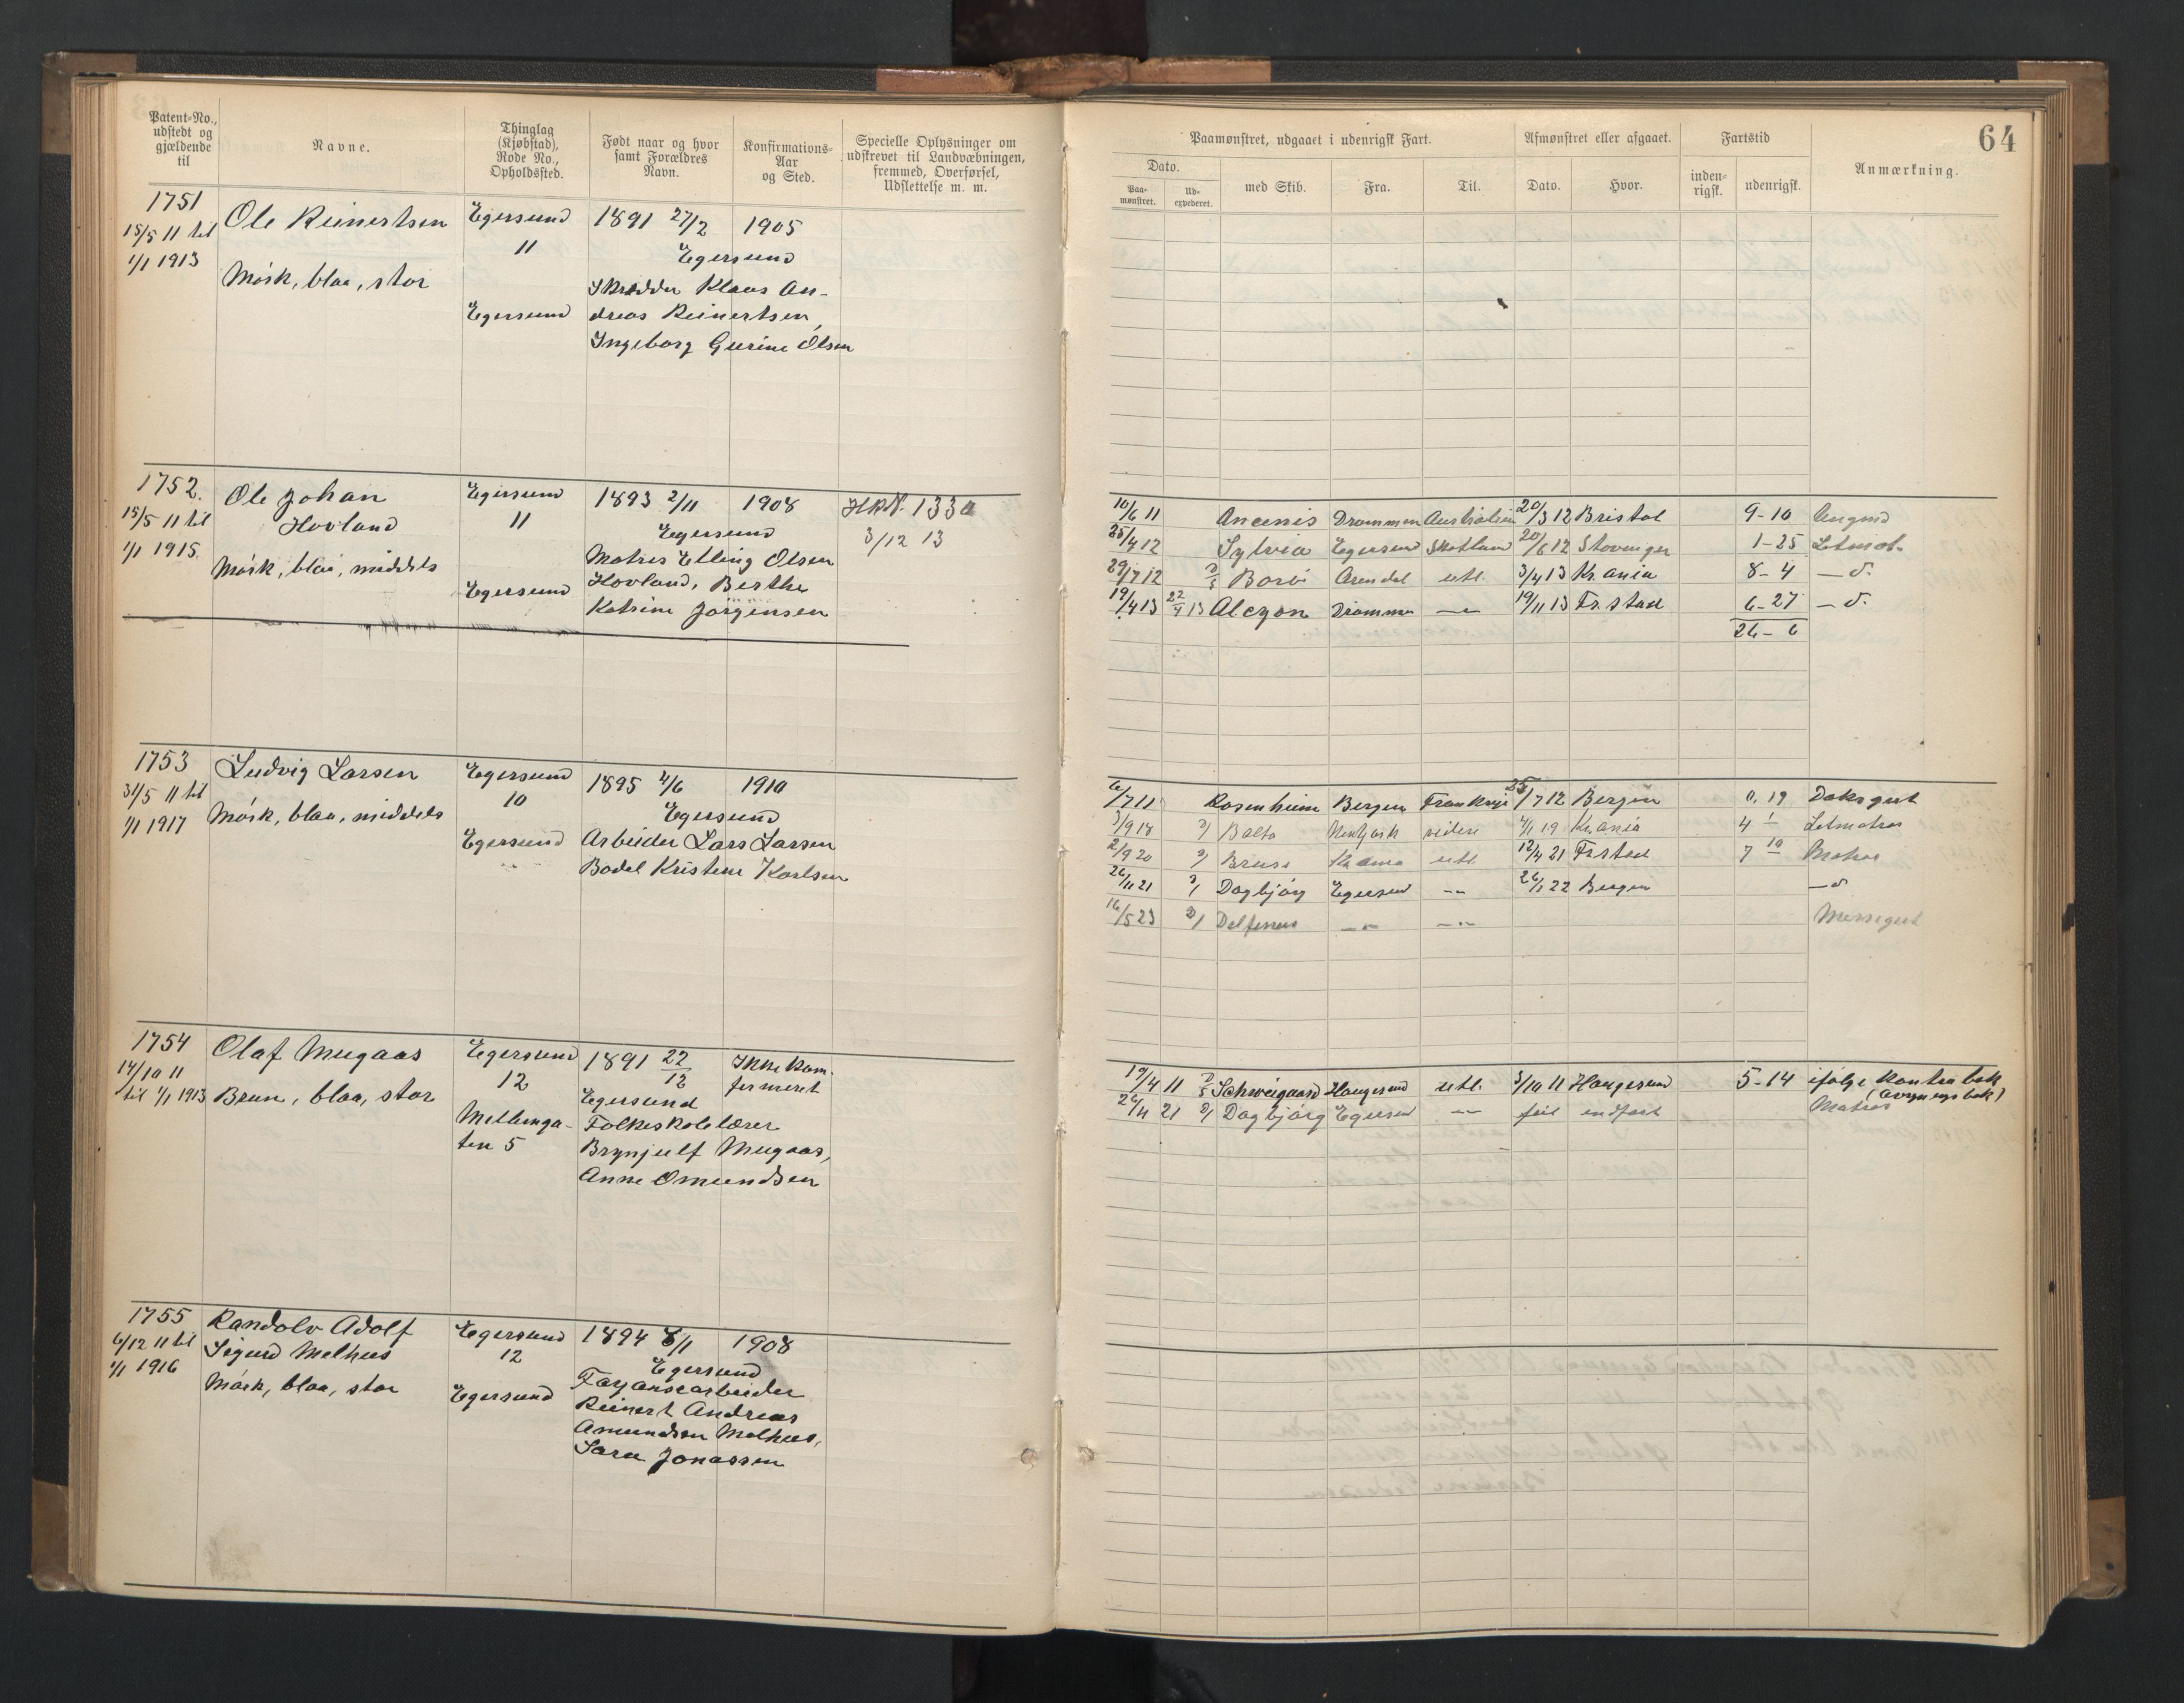 64
Patent-No., udstedt og gjældende til
Navne.
Thinglag (Kjøbstad), Rode No., Opholdssted.
Født naar og hvor samt Forældres Navn.
Konfirmations-Aar og Sted.
Specielle Oplysninger om udskrevet til Landvæbningen, fremmed, Overførsel, Udslettelse m. m.
Paamønstret, udgaaet i udenrigsk Fart.
Dato.
Paa-mønstret.
Ud-expederet.
med Skib.
Fra.
Til.
Afmønstret eller afgaaet.
Dato.
Hvor.
Fartstid
inden-rigsk.
udenrigsk.
Anmærkning.
1751
15/5 11 til
1/1 1913
Ole Reinertsen
Mørk, blaa, stor
Egersund
11
Egersund
1891 27/2 1905
Egersund
Skrædder Klaus An-
dreas Reinertsen,
Ingeborg Gurine Olsen
1752.
15/5 11 til
1/1 1915
Ole Johan
Hovland
Mørk, blaa, middels
Egersund
11
Egersund
1893 2/11 1908
Egersund
Matros Elling Olsen
Hovland, Berthe
Katrine Jørgensen
HRN. 133a
3/12 13
10/6 11 Ancenis Drammen Australien 20/3 12 Bristol 9-10 Jungmd
25/4 12 Sylvia Egersund Skotland 20/6 12 Stavanger 1-25 Letmat.
29/7 12 D/S Borei Arendal utl. 3/4 13 Kr.ania 8-4 — d.
19/4 13 22/4 13 Alcyon Drammen — 19/11 13 Fr.stad 6-27 — d.
26-6
1753
31/5 11 til
1/1 1917
Ludvig Larsen
Mørk, blaa, middels
Egersund
10
Egersund
1895 4/6 1910
Egersund
Arbeider Lars Larsen
Bodel Kristine Karlsen
6/7 11 Rosenheim Bergen Frankrige 25/7 12 Bergen 0.19 Daksgut
3/9 18 D/ Balto Newyork videre 4/1 19 Kr.ania 4 1 Letmatros
2/9 20 D/ Bruse Kr.ania utl. 12/4 21 Fr.stad 7 10 Matros
26/11 21 D/ Dagbjørg Egersund -„- 26/1 22 Bergen — d
16/5 23 D/ Delfinus -„- -„- Messegut
1754
14/10 11
til 1/1 1913
Olaf Mugaas
Brun, blaa, stor
Egersund
12
Mellemga-
ten 5
1891 22/12 Ikke kon-
fermeret
Egersund
Folkeskolelærer
Brynjulf Mugaas,
Anne Omundsen
19/4 11 D/S Schweigaard Haugesund utl. 3/10 11 Haugesund 5-14 ifølge kontrabok
26/11 21 D/ Dagbjørg Egersund -„- feil indført Matros
1755
6/12 11 til
1/1 1916
Randolv Adolf
Sigurd Melhus
Mørk, blaa, stor
Egersund
12
Egersund
1894 8/1 1908
Egersund
Fayansearbeider
Reinert Andreas
Amundsen Melhus,
Sara Jonassen